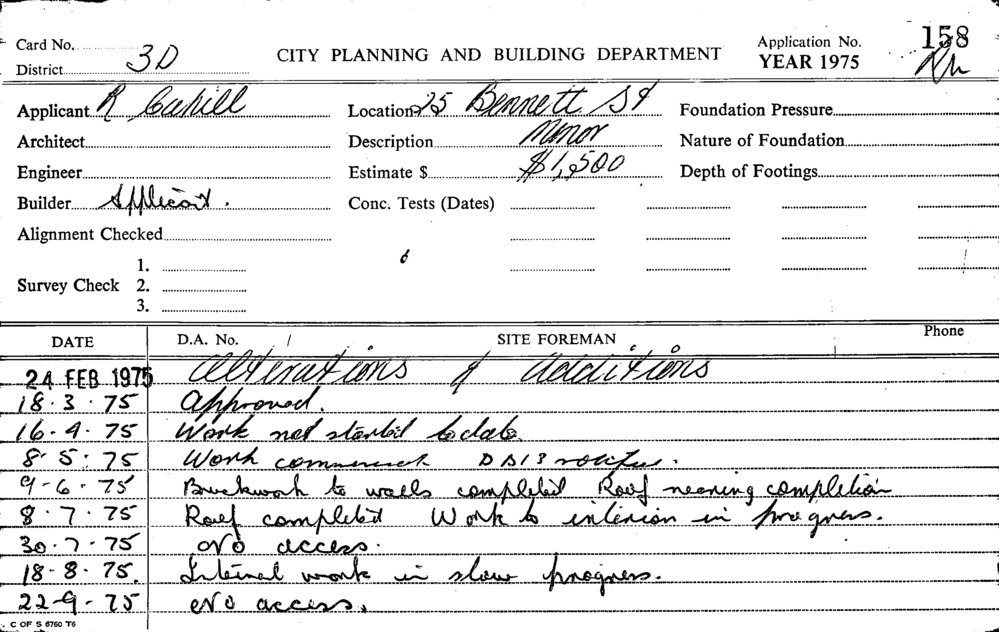 Card No.
District 3D
CITY PLANNING AND BUILDING DEPARTMENT
Application No. 158
YEAR 1975
Applicant R Cahill
Location 25 Bennett St
Foundation Pressure
Architect
Description Minor
Nature of Foundation
Engineer
Estimate $ $1,500
Depth of Footings
Builder Applicant.
Conc. Tests (Dates)
Alignment Checked
Survey Check 1.
2.
3.
DATE D.A. No. SITE FOREMAN Phone
24 FEB 1975 Alterations & Additions
18.3.75 Approved.
16-4-75 Work not started to date.
8.5.75 Work commenced DS13
9-6-75 Brickwork to walls completed Roof nearing completion
8.7.75 Roof completed Work to interior in progress.
30.7.75 No access.
18-8-75. Internal work in slow progress.
22-9-75 No access.
C OF S 6760 T6